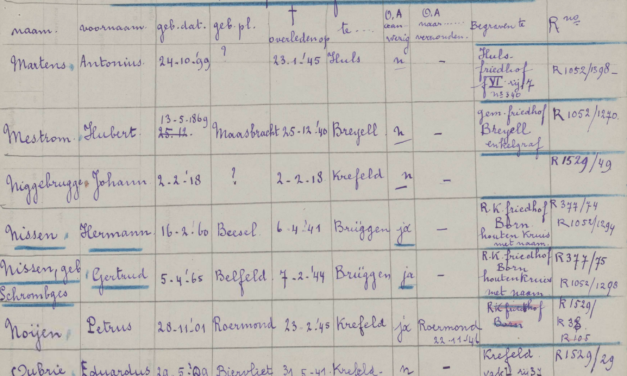 naam. voornaam geb.dat. geb.pl. † overleden op te.... O.A aanwezig O.A naar verzonden. Begraven te R no
Martens, Antonius 24-10-'99 ? 23-1-'45 Huls n — Huls-friedhof f VI rij 7 R1052/1598-
Mestrom, Hubert 13-5-1869 25-12. Maasbracht 25-12-'40 Breyell n — gem. friedhof Breyell enkelgraf R1052/1270.
Niggebrugge, Johann 2-2-'18 ? 2-2-'18 Krefeld n — R1529/49
Nissen, Hermann 16-2-'60 Beesel 6-4-'41 Brüggen ja — R.K. friedhof Born houten kruis met naam R377/74 R1052/1294
Nissen, geb Schrombges, Gertrud 5-4-'65 Belfeld 7-2-'44 Brüggen ja — R.K. friedhof Born houten kruis met naam R377/75 R1052/1298
Noijen, Petrus 28-11-'01 Roermond 23-2-'45 Krefeld ja Roermond 22-11-'46 R.K. friedhof Born R1529/ R105
Eduardus Biervliet 31-5-'41 Krefeld n — Krefeld R1529/29